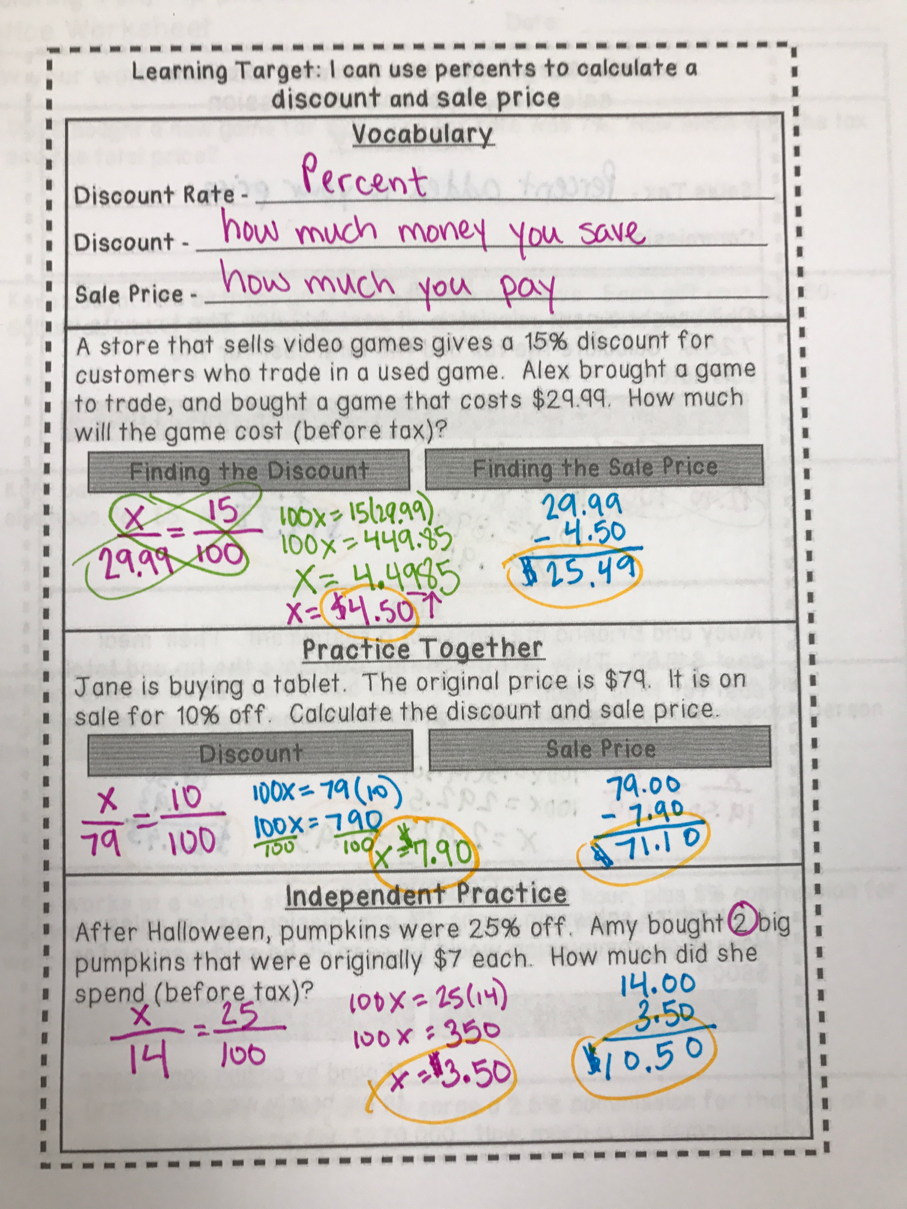 Learning Target: I can use percents to calculate a
discount and sale price
Vocabulary
Discount Rate - Percent
Discount - how much money you save
Sale Price - how much you pay
A store that sells video games gives a 15% discount for
customers who trade in a used game. Alex brought a game
to trade, and bought a game that costs $29.99. How much
will the game cost (before tax)?
Finding the Discount
x/29.99 = 15/100
100x = 15(29.99)
100x = 449.85
x = 4.4985
x = $4.50 ↑
Finding the Sale Price
29.99
- 4.50
$25.49
Practice Together
Jane is buying a tablet. The original price is $79. It is on
sale for 10% off. Calculate the discount and sale price.
Discount
x/79 = 10/100
100x = 79(10)
100x = 790
100 100
x = $7.90
Sale Price
79.00
- 7.90
$71.10
Independent Practice
After Halloween, pumpkins were 25% off. Amy bought 2 big
pumpkins that were originally $7 each. How much did she
spend (before tax)?
x/14 = 25/100
100x = 25(14)
100x = 350
x = $3.50
14.00
3.50
$10.50